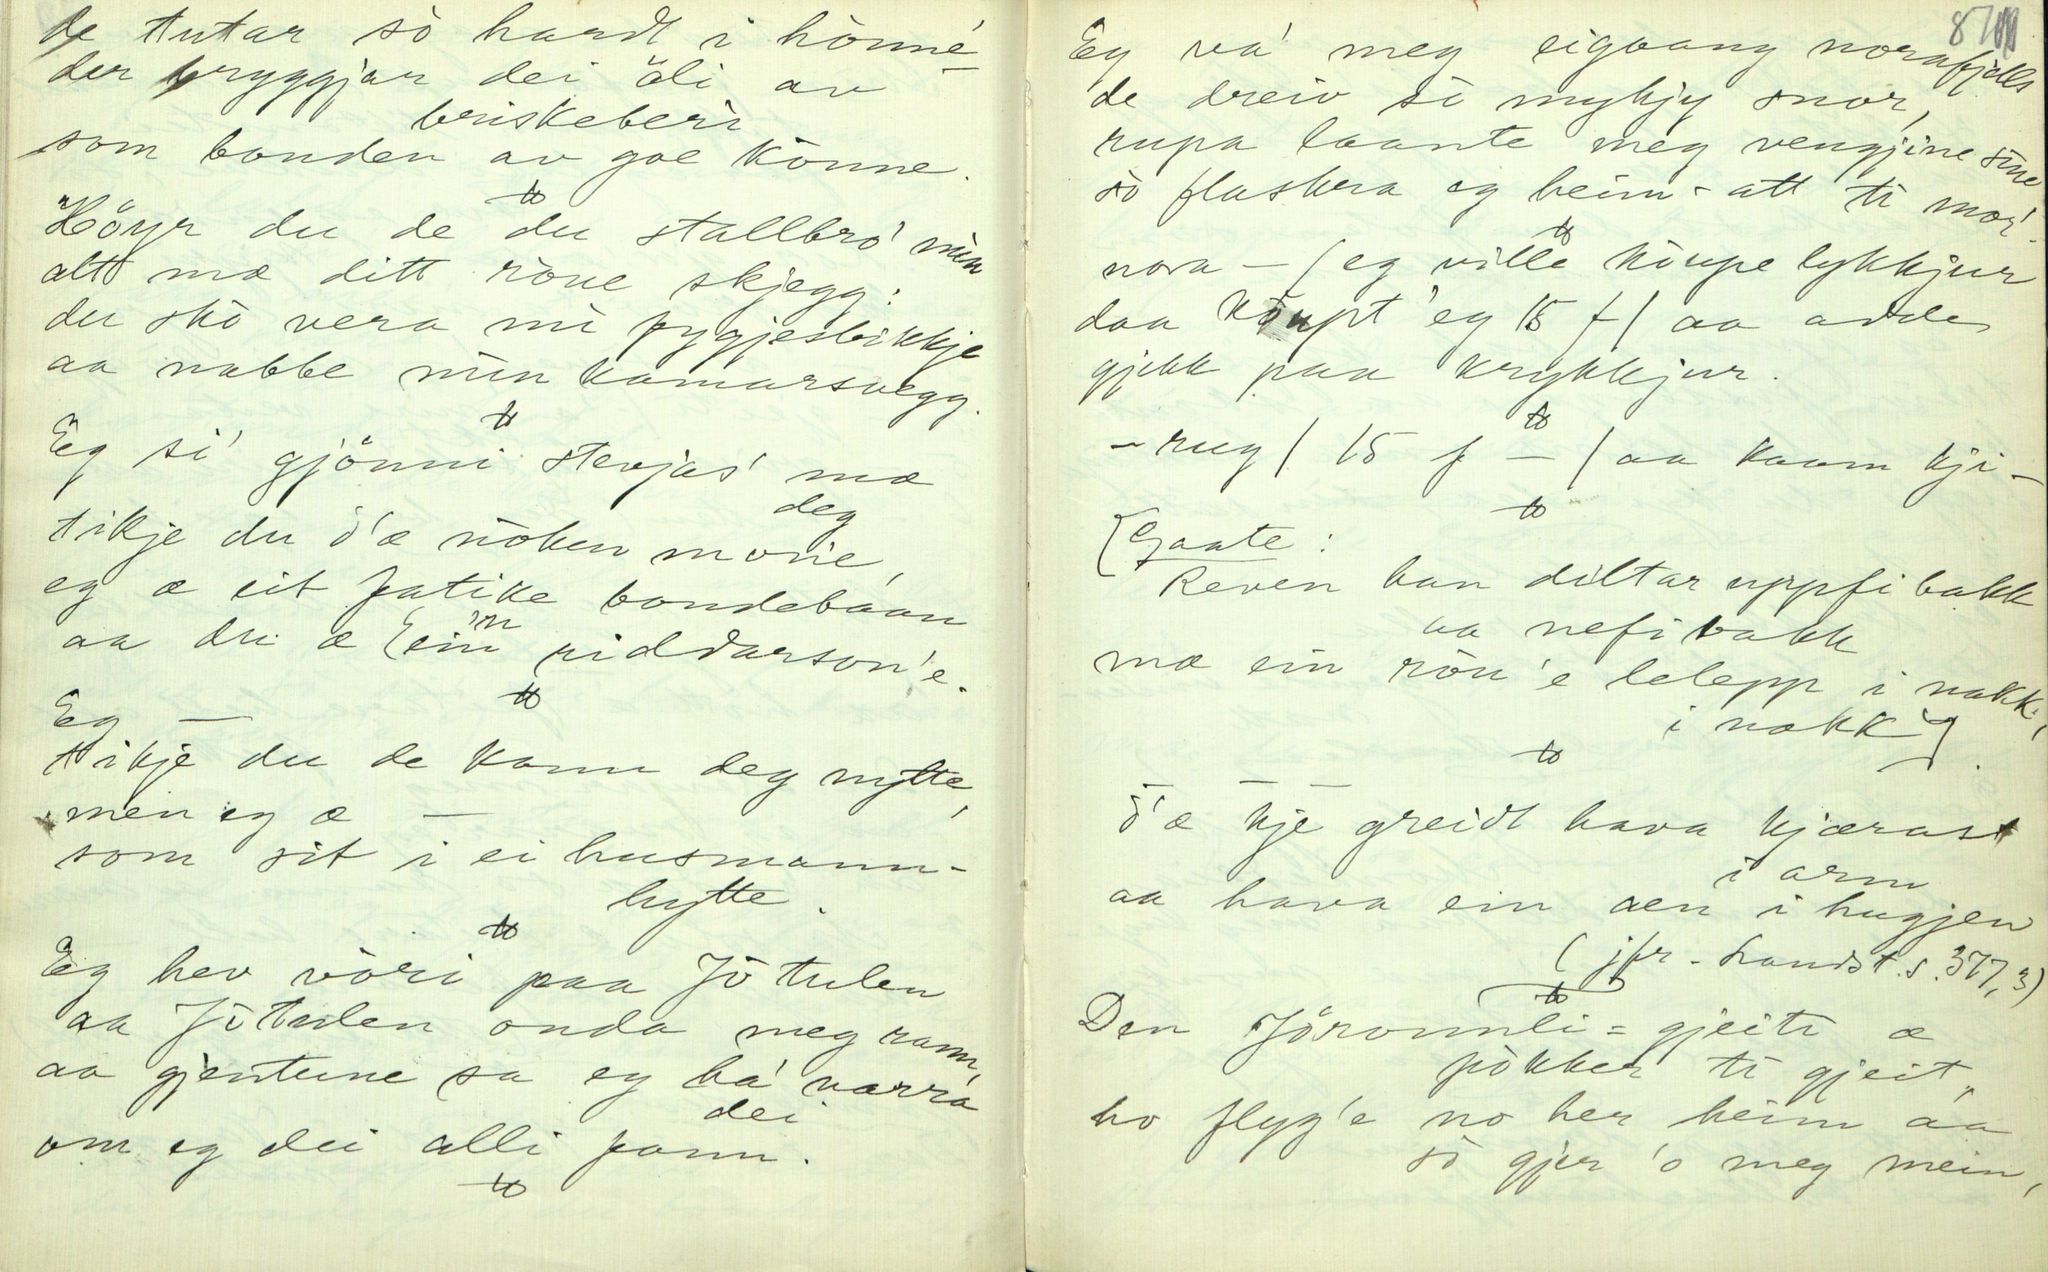 de tutar sò hardt i hönne'
der bryggjar dei öli av
briskeberì
som bonden av goe könne.
Höyr du de du stallbro' min
alt mæ ditt röue skjegg:
du skò vera mi pygjesbikkje
aa nabbe min kamarsvegg.
Eg si' gjönni stevjas' mæ
deg
tikje du ò'æ nòken mon'e,
eg æ eit fatike bondebaan
aa du æ (ein riddarson'e.
Eg —
tikje du de kann deg nytte,
men eg æ —
som sit i ei husmann-
hytte.
Eg hev vòri paa Jòtulen
aa Jòtulen onda meg ramn,
aa gjentune sa eg ha' narra
dei
om eg dei alli fann.
87
Eg va' meg eigaang norafjells
de dreiv sò mykjy snor,
rupa laante meg vengjine sine
sò flaskra eg heim-att ti mor'.
nora – / eg ville köupe lykkjur
daa köupt' eg 15 f / aa adde
gjekk paa krykkjur.
– rug / 15 f – / aa kaam kji –
[Gaate:
Reven han diltar uppfi bakk
aa nefi bakk
mæ ein röu'e lelepp i nakk,
i nakk].
ò'æ kje greidt hava kjærast
i arm
aa hava ein aen i hugjen
(jfr. Landst. s. 377, 3)
Den Jöronnli-gjeiti æ
pòkker ti gjeit,
ho flyg'e no her heim aa
sò gjer 'o meg mein,